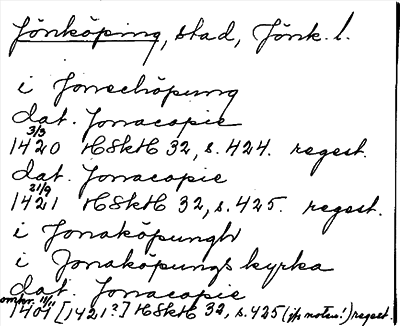 Jönköping, stad, Jönk. l.
i Jonechöpung
dat. Jonacopie
1420 3/3 HSkH 32, s. 424. regest.
dat. Jonacopie
1421 21/9 HSkH 32, s. 425. regest.
i Jonaköpungh
i Jonaköpungs kyrka
dat. Jonacopie
omkr. 11/11 1401 [1421?] HSkH 32, s. 425 (jfr notus!) regest.